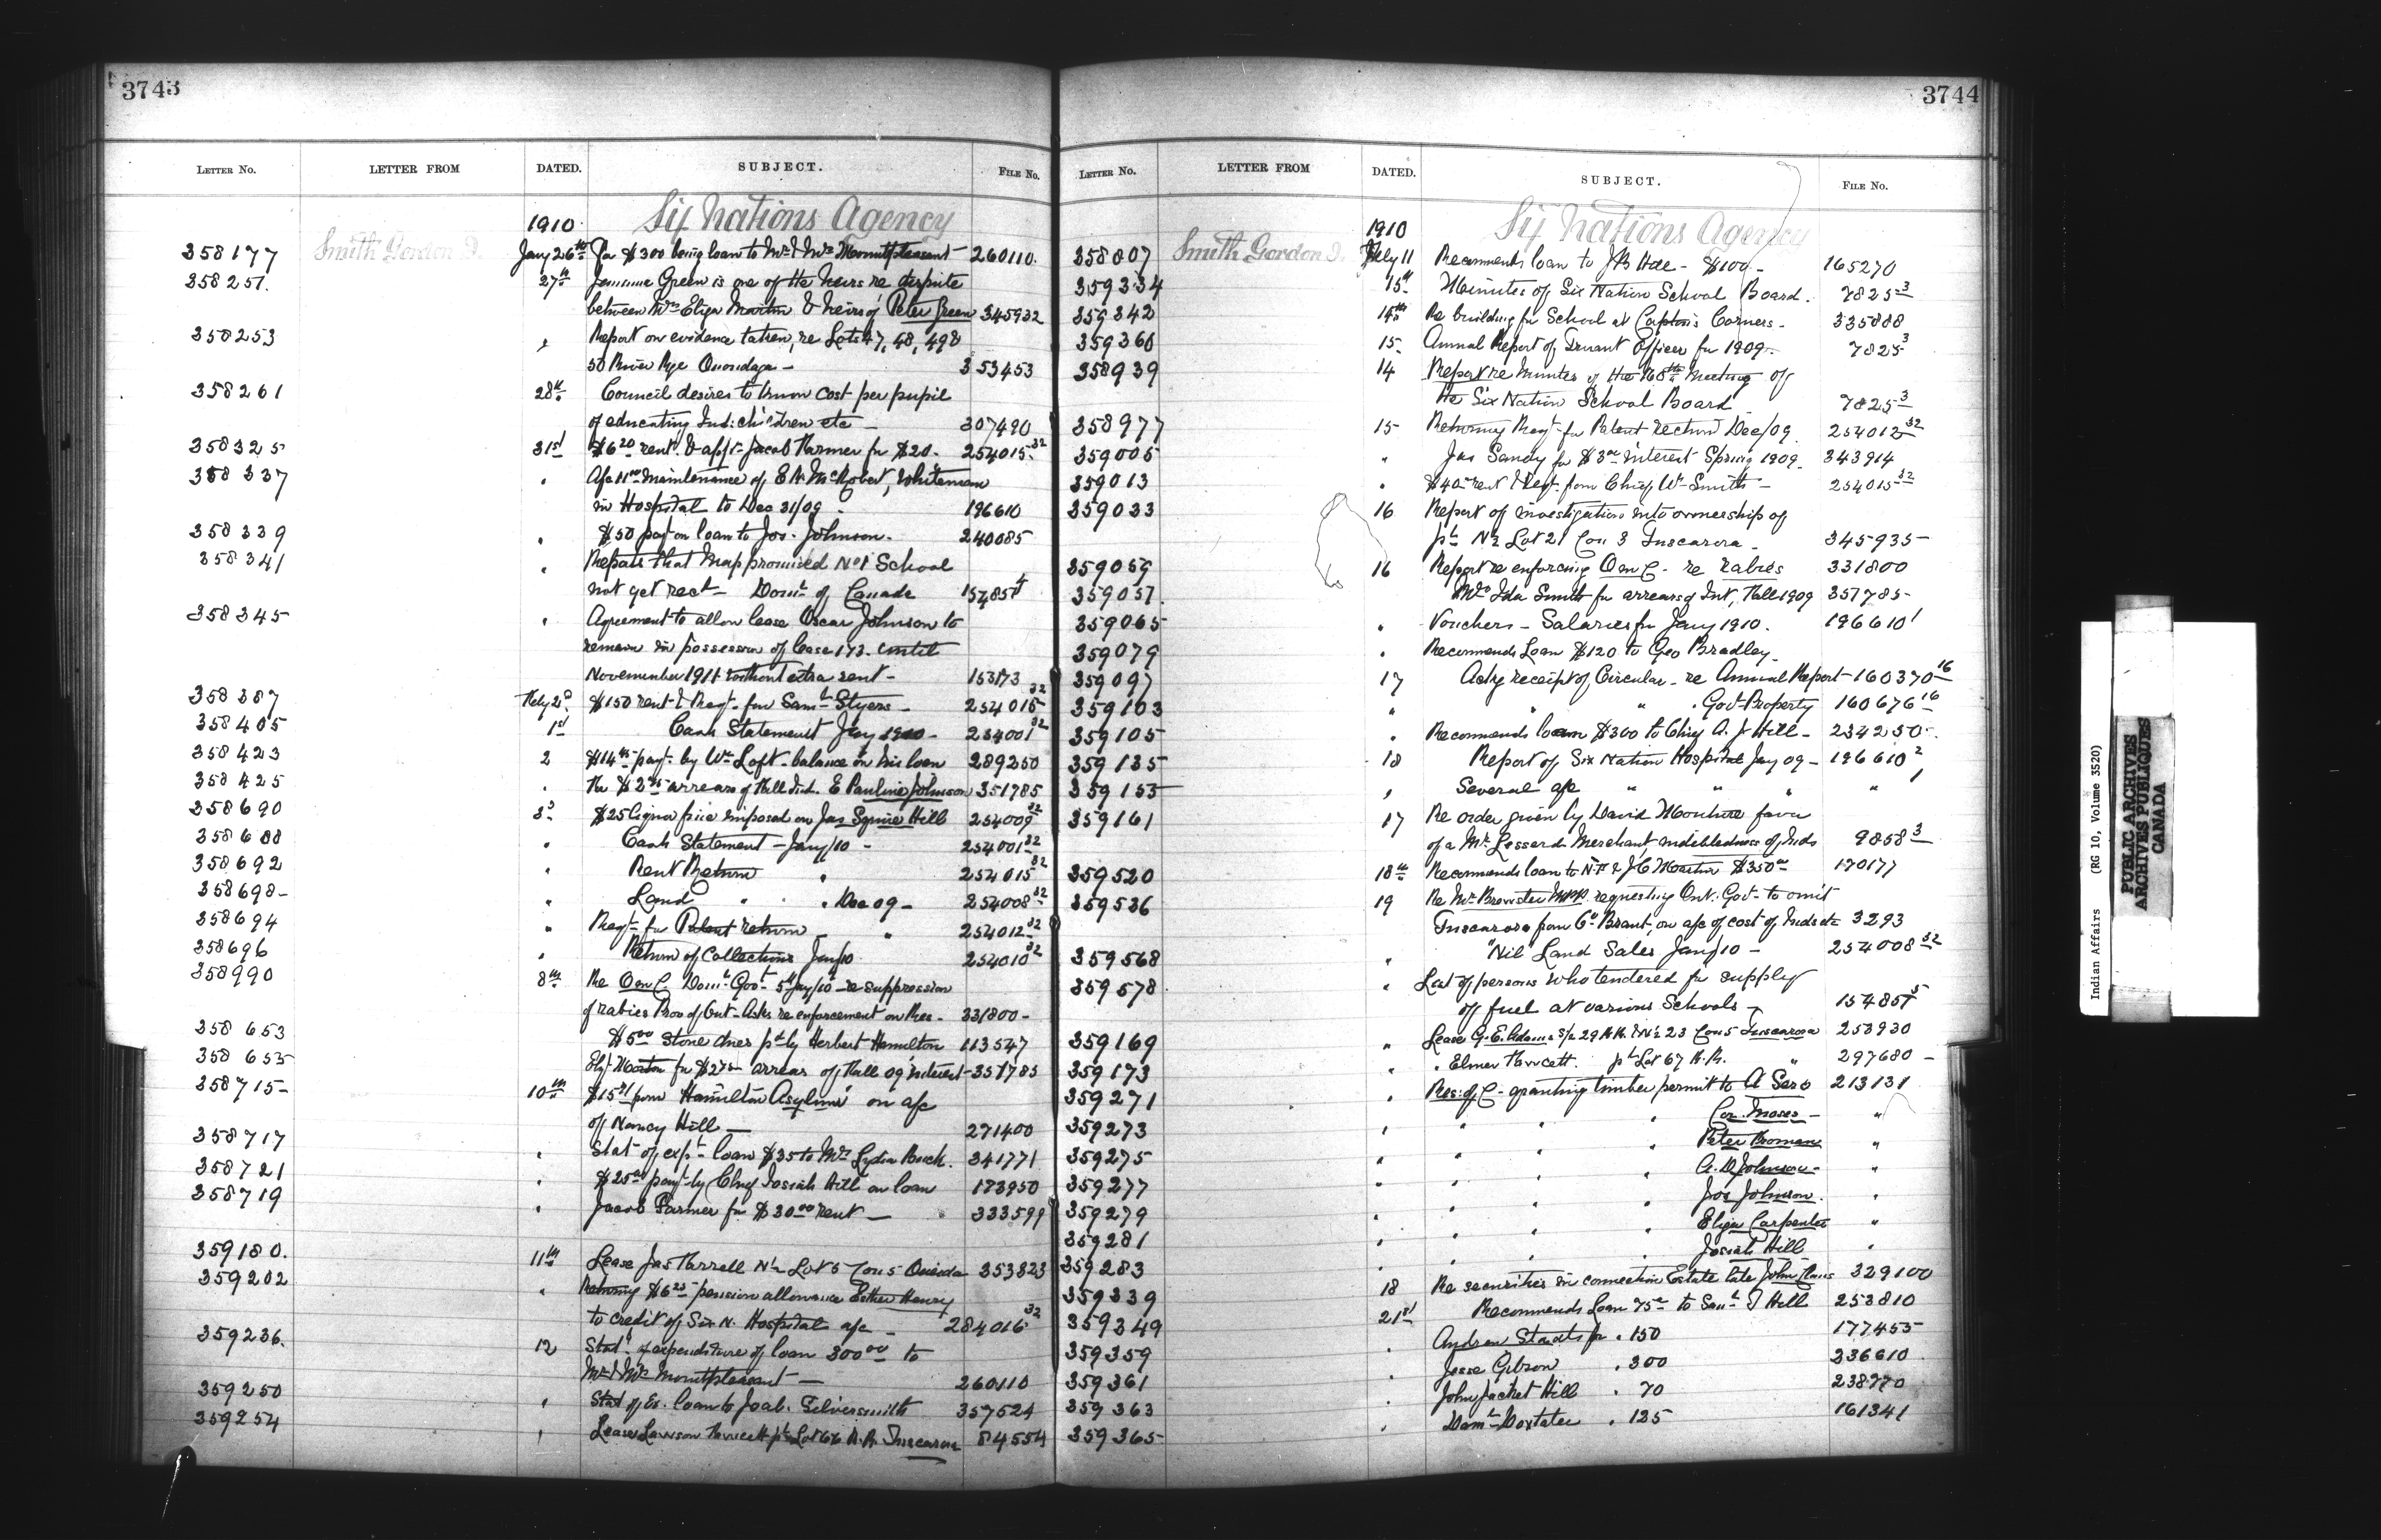 3743
LETTER NO. LETTER FROM DATED. SUBJECT. FILE NO.
Six Nations Agency
1910
358177 Smith Gordon J. Jany 26th Pa $300 being loan to Mr & Mrs Mountpleasant - 260110.
358251. 27th Jemima Green is one of the heirs re dispute
between Mrs Eliza Martin & heirs of Peter Green 345932
358253 " Report on evidence taken, re Lots 47, 48, 49 &
50 River Rge Onondaga - 353453
358261 28th Council desires to know cost per pupil
of educating Ind: children etc - 307490
358325 31st $6.20 rent & appt - Jacob Farmer for $20. 254015-32
358337 " Maintenance of McRobert, Whiteman
in Hospital to Dec 31/09 - 196610
358339 " $50 payt on loan to Jos. Johnson. 240085
358341 " Reports that Map promised No 1 School
not yet rect - Domn of Canada
358345 " Agreement to allow lease Oscar Johnson to
remain in possession of lease 173. until
November 1911 without extra rent - 153173
358387 Feby 2d $150 rent & Reqt for Saml Styers - 254015 32
358405 1st Cash Statement Jany 1910 - 254001 32
358423 2 payt by Wm Loft - balance on his loan 289250
358425 " arrears of Fall Int. E Pauline Johnson 351785
358690 3d $25 liquor fine imposed on Jas Squire Hill 254009 32
358688 " Cash Statement - Jany/10 - 254001 32
358692 " Rent Return " 254015 32
358698- " Land " " Dec 09 - 254008 32
358694 " Reqt for Patent return " 254012 32
358696 " Return of Collections Jan/10 254010 32
358990 8th Re O in C Domn Govt 5th Jany/10 - re suppression
of rabies Prov of Ont - Asks re enforcement on Res - 331800 -
358653 $5.00 stone dues pd by Herbert Hamilton 113547
358655 Martin for arrears of Fall 09 interest - 351785
358715- 10th from Hamilton Asylum on a/c
of Nancy Hill - 271400
358717 " Stat of exp - loan $35 to Mrs Lydia Buck. 341771
358721 " $25 payt by Chief Josiah Hill on loan 173950
358719 " Jacob Farmer for $30.00 rent - 333599
359180. 11th Lease Jas Farrell N½ Lot 5 Con 5 Oneida 353823
359202 " Returning $6.25 pension allowance Esther Henry
to credit of Six N. Hospital a/c - 284016 32
359236. 12 Stat. of expenditure of loan 300.00 to
Mr & Mrs Mountpleasant - 260110
359250 " Stat of Ex. loan to Joab. Silversmith 357524
359254 " Lease Lawson Fawcett pt Lot 66 R.R. Tuscarora 84554
3744
LETTER NO. LETTER FROM DATED. SUBJECT. FILE NO.
Six Nations Agency
1910
358807 Smith Gordon J. Feby 11 Recommends loan to J B Hill - $100 - 165270
359334 15th Minutes of Six Nation School Board. 7825-3
359342 14th Re building for School at Capton's Corners - 335888
359360 15 Annual Report of Truant Officer for 1909 - 7825 3
358939 14 Report re Minutes of the 168th Meeting of
the Six Nation School Board 7825 3
358977 15 Returning Reqt for Patent return Dec/09. 254012 32
359005 " Jas Sandy for interest Spring 1909. 343914
359013 " from Chief Wm Smith - 254015 32
359033 16 Report of investigation into ownership of
pt N½ Lot 21 Con 3 Tuscarora - 345935
359059 16 Report re enforcing O in C - re rabies 331800
359057. Mrs Ida Smith for arrears of Int, Fall 1909 351785-
359065 " Vouchers - Salaries for Jany 1910. 196610 1
359079 " Recommends Loan $120 to Geo Bradley -
359097 17 Ackg receipt of Circular - re Annual Report - 160370 16
359103 " " " Govt Property 160676 16
359105 " Recommends loan $300 to Chief A. J Hill - 234250
359135 18 Report of Six Nation Hospital Jany 09 - 196610 2
359153 " Several a/c " " " " 1
359161 17 Re order given by David Mouture favor
of a Mr Lessard Merchant, indebtedness of Inds 9858 3
359520 18th Recommends loan to & J C Martin $350 170177
359536 19 Re Mr Brewster M.P.P. requesting Ont. Govt to omit
Tuscarora from Co Brant, on a/c of cost of Inds etc 3293
359568 " "Nil" Land Sales Jany/10 - 254008 32
359578 " List of persons who tendered for supply
of fuel at various Schools -
359169 " Lease G. E. Adams S/p 29 R.R. & N½ 23 Con 5 Tuscarora 253930
359173 " " Elmer Fawcett. pt Lot 67 R.R. " 297680 -
359271 " Res: of C - granting timber permit to A Sero 213131
359273 " " " " Cor. Moses - "
359275 " " " " Peter Froman "
359277 " " " " A. D. Johnson - "
359279 " " " " Jos Johnson. "
359281 " " " " Eliza Carpenter "
359283 " " " " Josiah Hill "
359339 18 Re securities in connection Estate late John Claus 329100
359349 21st Recommends Loan 75 to Saml J Hill 253810
359359 " Andrew Staats for " 150 177455
359361 " Jesse Gibson " 300 236610
359363 " John Jacket Hill " 70 238770
359365- " Doxtater " 125 161341
Indian Affairs (RG 10, Volume 3520)
PUBLIC ARCHIVES
ARCHIVES PUBLIQUES
CANADA